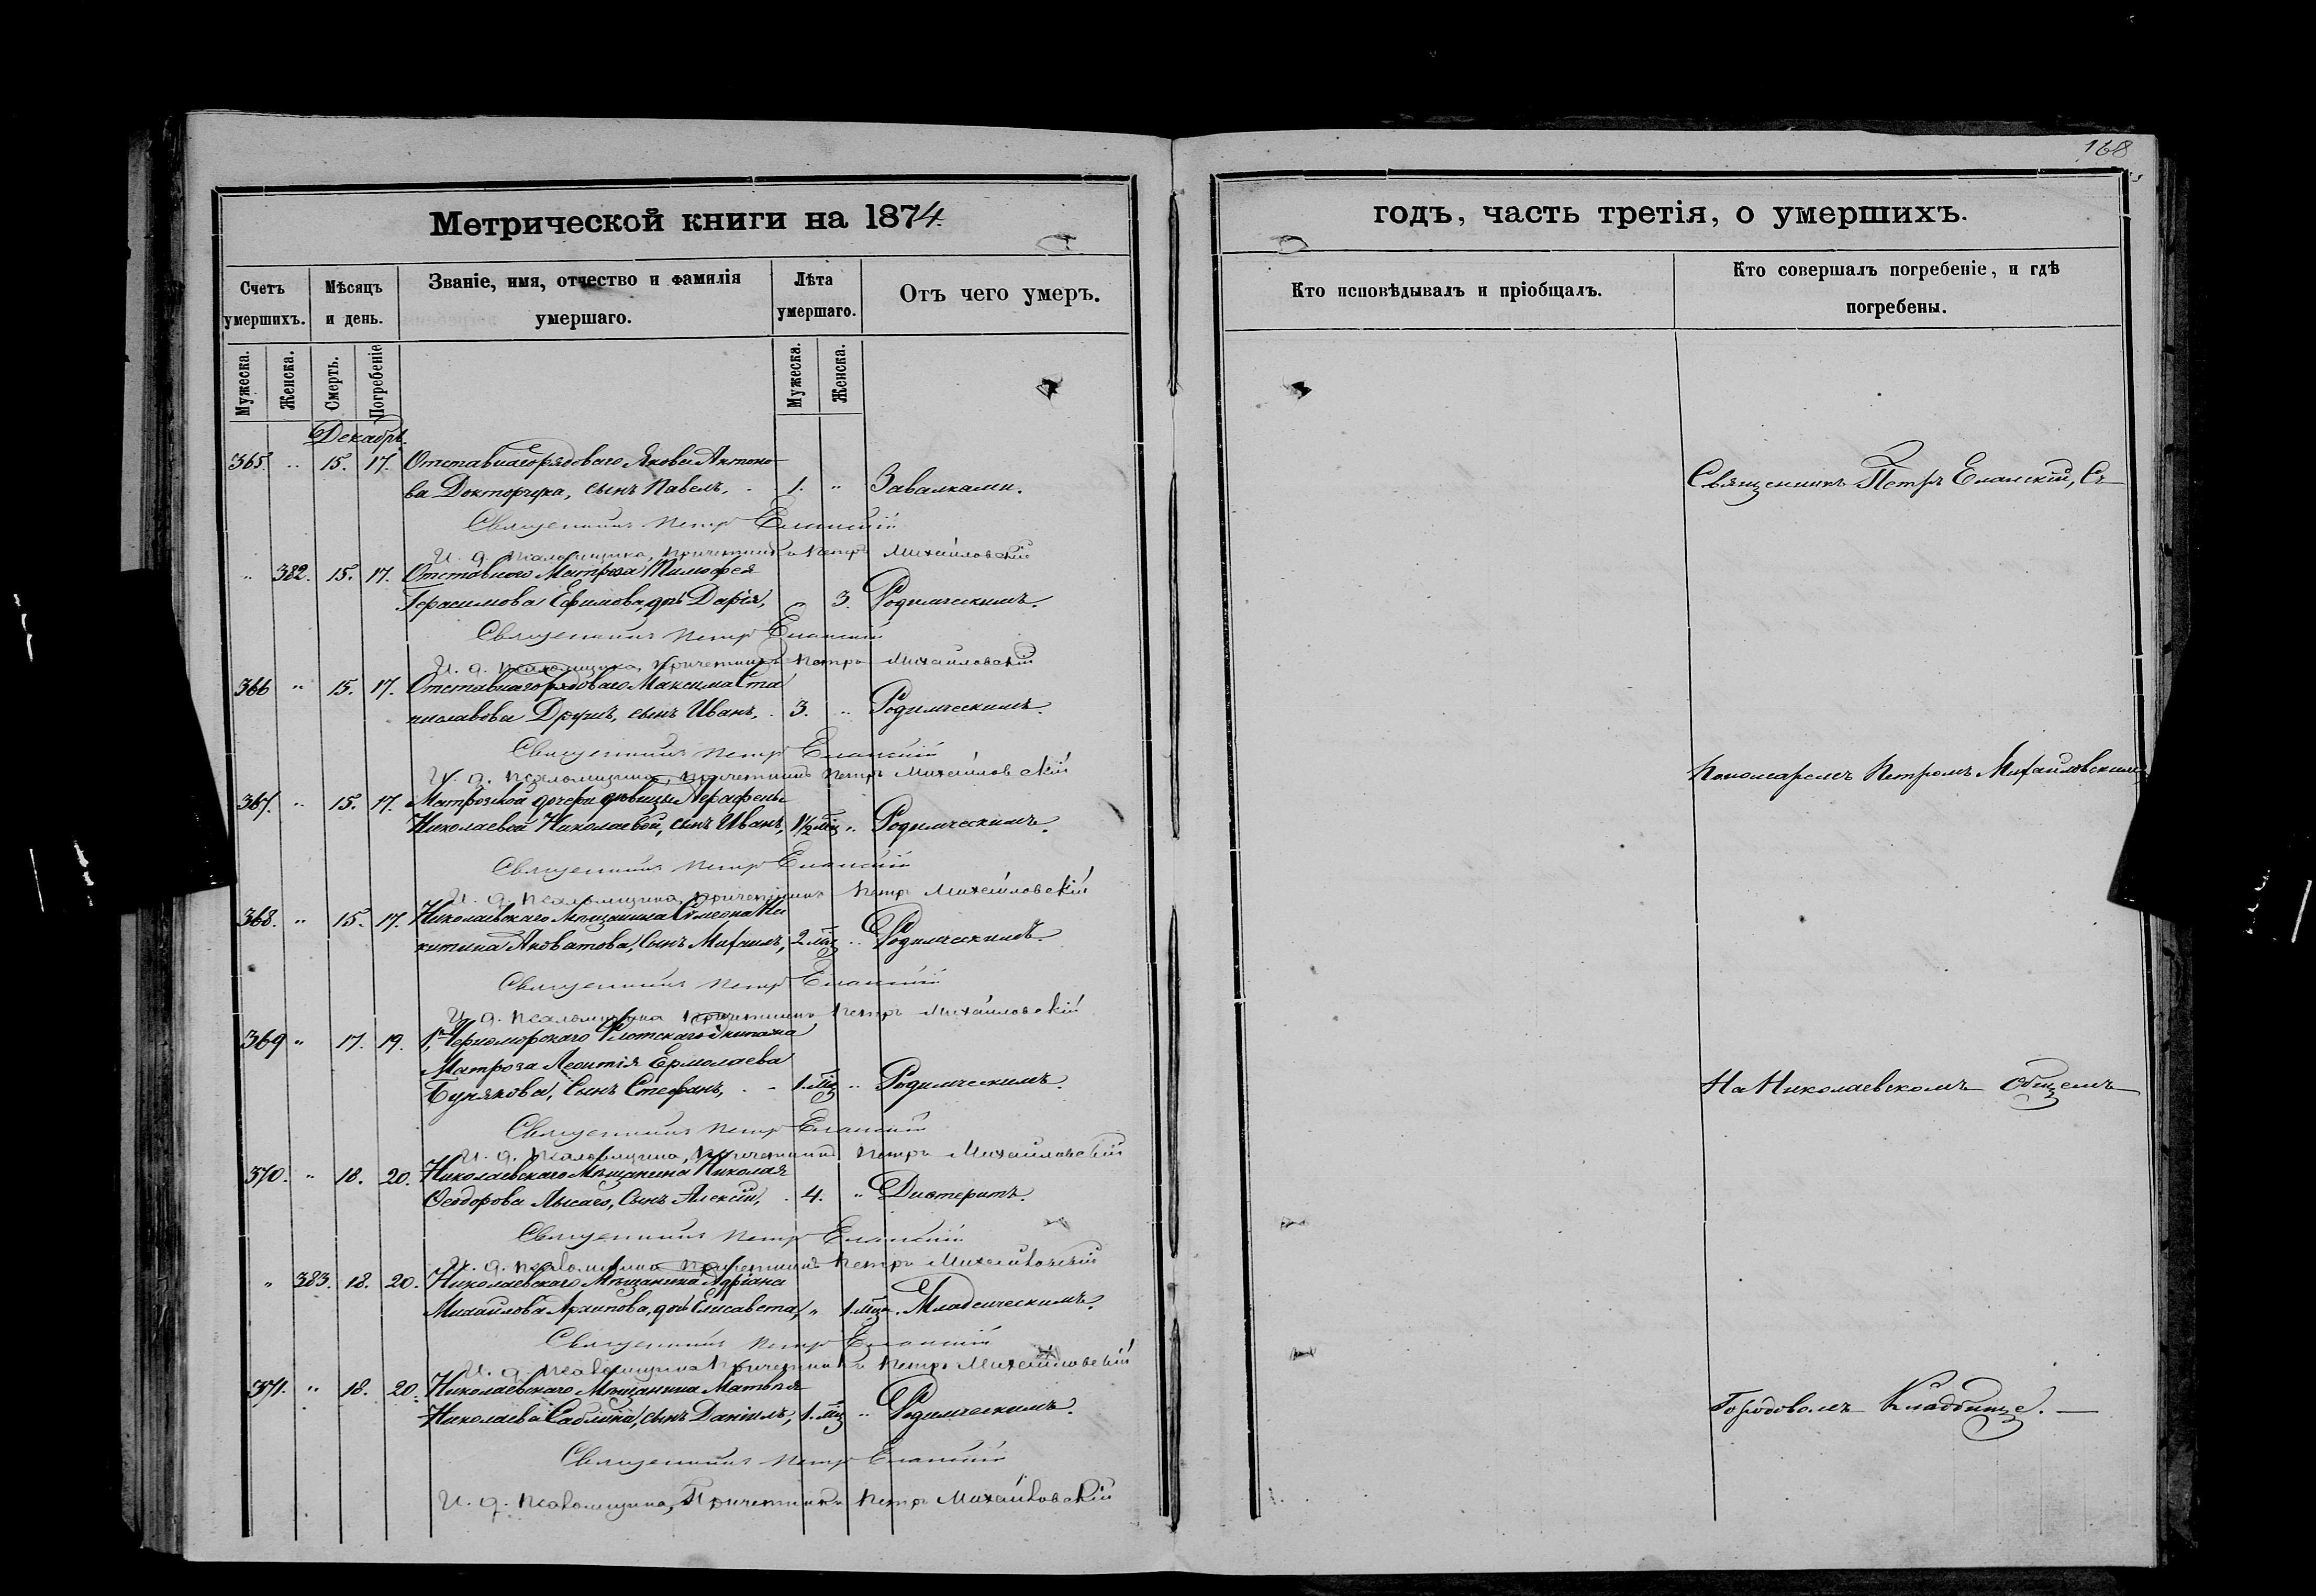 168
Метрической книги на 1874
годъ, часть третія, о умершихъ.
Счетъ умершихъ.
Мѣсяцъ и день.
Званіе, имя, отчество и фамилія умершаго.
Лѣта умершаго.
Отъ чего умеръ.
Кто исповѣдывалъ и пріобщалъ.
Кто совершалъ погребеніе, и гдѣ погребены.
Мужеска. Женска. Смерть. Погребеніе Мужеска. Женска.
Декабрь.
365. " 15. 17. Отставнаго рядоваго Якова Антоно-
ва Докторчука, сынъ Павелъ, 1. " Завалками.
Священникъ Петръ Еланскій
И. д. псаломщика, причетникъ Петръ Михайловскій
" 382. 15. 17. Отставного Матроза Тимофея
Герасимова Ефимова, дочь Дарія, " 3. Родимческимъ.
Священникъ Петръ Еланскій
И. д. псаломщика, причетникъ Петръ Михайловскій
366 " 15. 17. Отставнаго рядоваго Максима Ста
ниславова Друшъ, сынъ Иванъ, 3. " Родимческимъ.
Священникъ Петръ Еланскій
И. д. псаломщика, причетникъ Петръ Михайловскій
367. " 15. 17. Матрозской дочери дѣвицы Аграфены
Николаевой Николаевой, сынъ Иванъ, 1½ мц " Родимческимъ.
Священникъ Петръ Еланскій
И. д. псаломщика, причетникъ Петръ Михайловскій
368. " 15. 17. Николаевскаго мѣщанина Сѵмеона Ни
китина Аковатова, сынъ Михаилъ, 2 мц " Родимческимъ.
Священникъ Петръ Еланскій
И. д. псаломщика причетникъ Петръ Михайловскій
369 " 17. 19. 1го Черноморскаго Флотскаго Экипажа
Матроза Леонтія Ермолаева
Бунякова, сынъ Стефанъ, 1 мц " Родимческимъ.
Священникъ Петръ Еланскій
И. д. псаломщика, причетникъ Петръ Михайловскій
370. " 18. 20. Николаевскаго Мѣщанина Николая
Ѳеодорова Лысаго, сынъ Алексій, 4. " Дифтеритъ.
Священникъ Петръ Еланскій
И. д. псаломщика причетникъ Петръ Михайловскій
" 383. 18. 20. Николаевскаго Мѣщанина Адріана
Михайлова Архипова, дочь Елисавета, " 1 мца. Младенческимъ.
Священникъ Петръ Еланскій
И. д. псаломщика причетникъ Петръ Михайловскій
371. " 18. 20. Николаевскаго Мѣщанина Матвѣя
Николаева Саблина, сынъ Даніилъ, 1 мц " Родимческимъ.
Священникъ Петръ Еланскій
И. д. псаломщика, Причетникъ Петръ Михайловскій
Священникъ Петръ Еланскій, Съ
Пономаремъ Петромъ Михайловскимъ
На Николаевскомъ Общемъ
Городовомъ Кладбище.